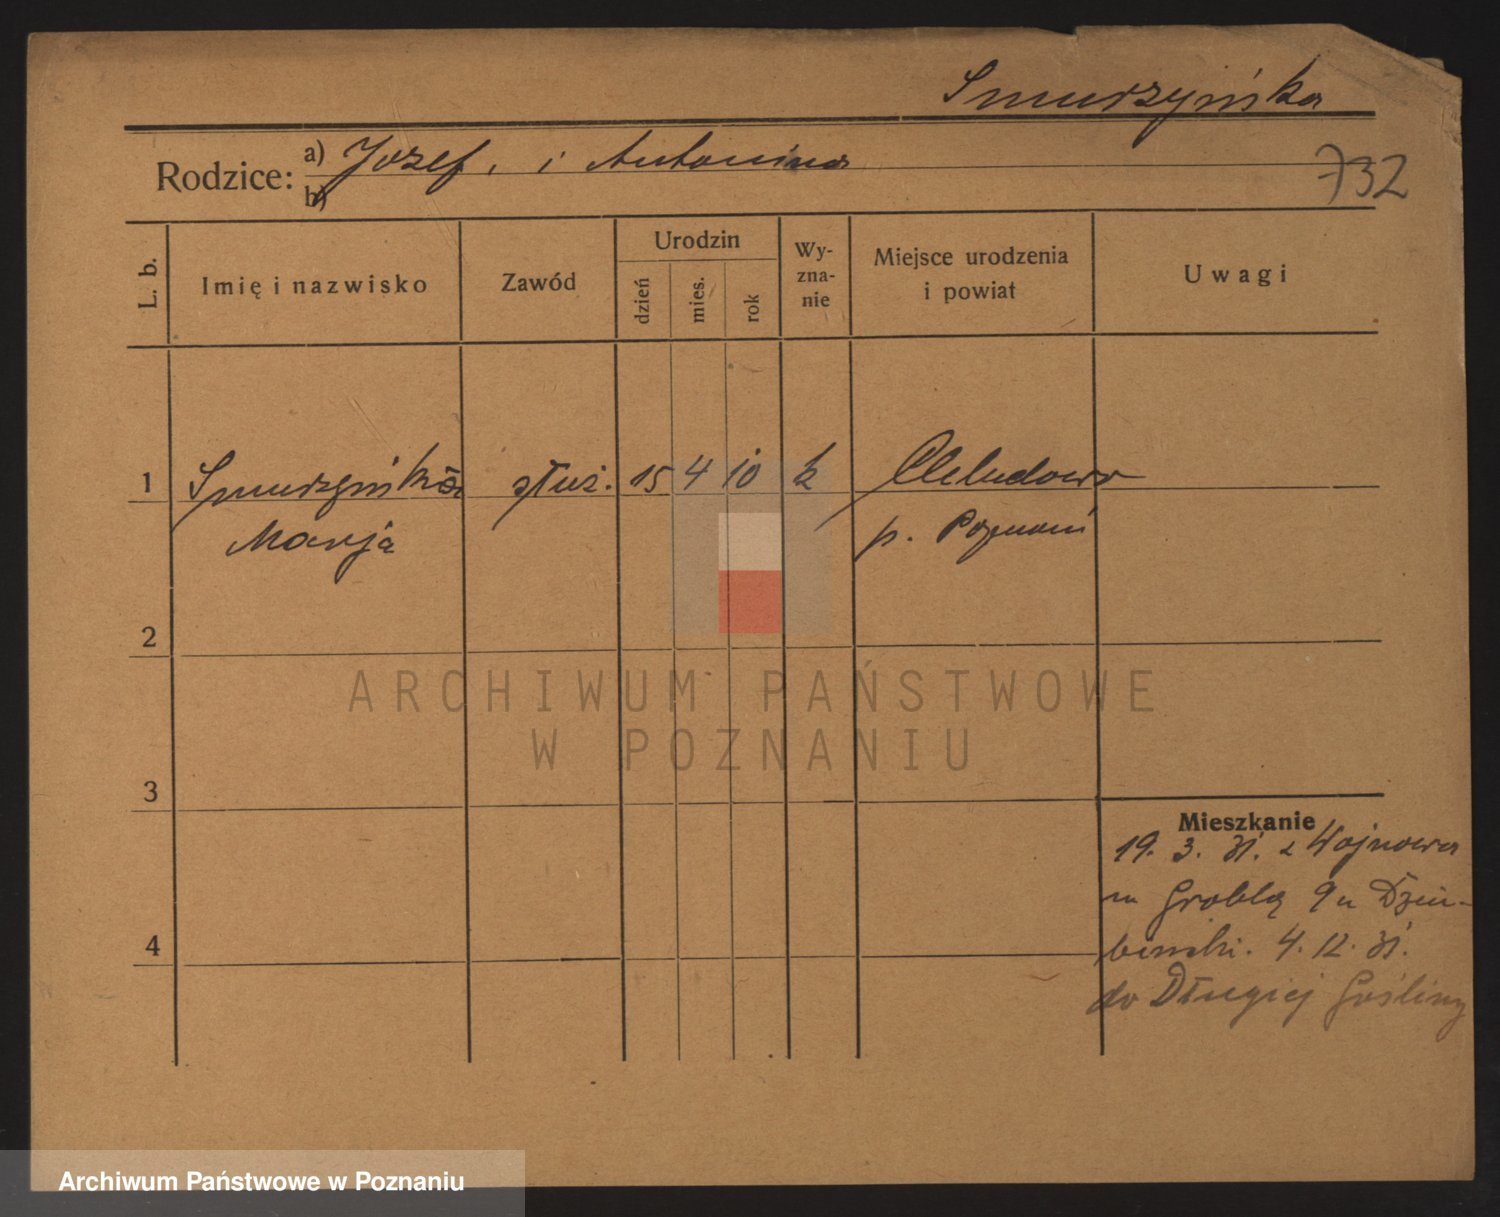 Smurzyńska
Rodzice: a) Józef, i Antonina
b)
732
L. b.
Imię i nazwisko
Zawód
Urodzin
dzień
mies.
rok
Wy-
zna-
nie
Miejsce urodzenia
i powiat
Uwagi
1 Smurzyńska służ. 15 4 10 k Chludowo
Marja p. Poznań
2
3
4
Mieszkanie
19. 3. 31. z Wojnowa
na Groblą 9 u
4. 12. 31.
do Długiej Gośliny
ARCHIWUM PAŃSTWOWE
W POZNANIU
Archiwum Państwowe w Poznaniu